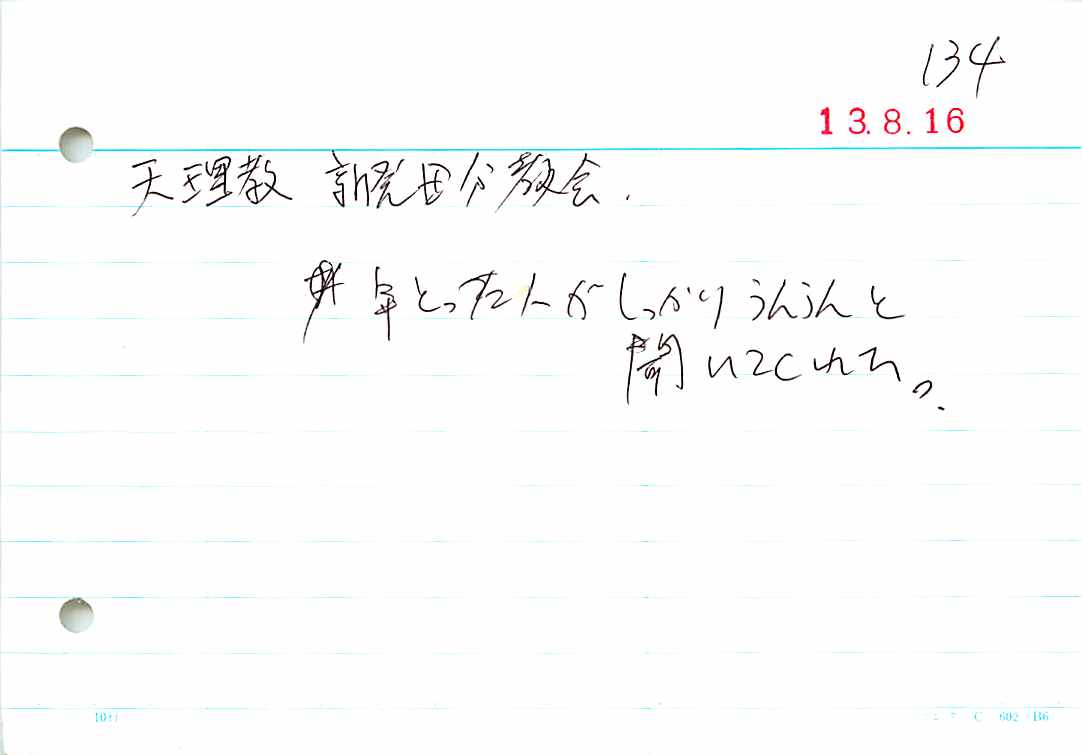 134
13.8.16
天理教 新発田分教会.
年とった人がしっかりうんうんと
聞いてくれた。
C 602 B6